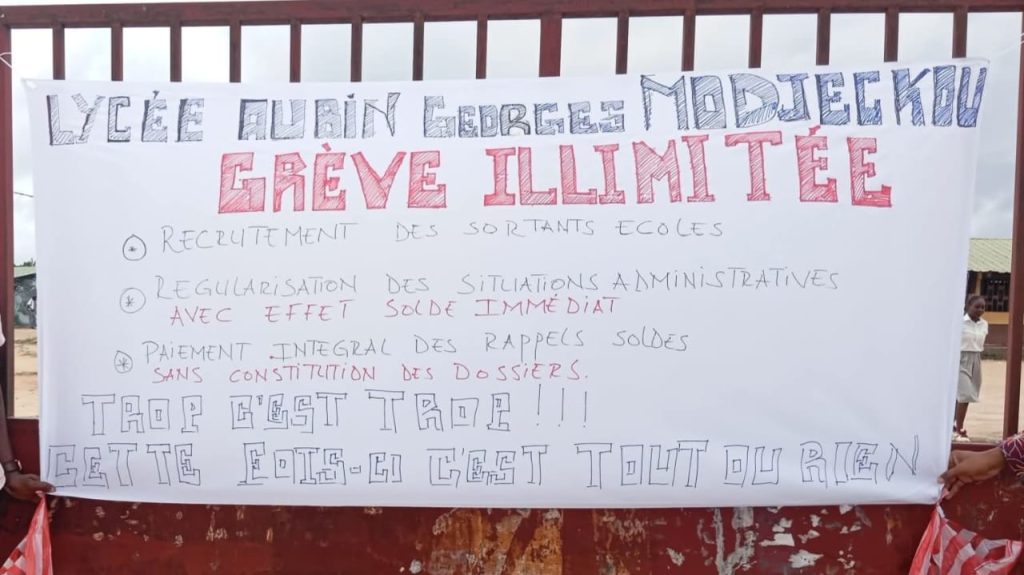 LYCÉE AUBIN GEORGES MODJECKOU
GRÈVE ILLIMITÉE
RECRUTEMENT DES SORTANTS ECOLES
REGULARISATION DES SITUATIONS ADMINISTRATIVES
AVEC EFFET SOLDE IMMÉDIAT
PAIEMENT INTEGRAL DES RAPPELS SOLDES
SANS CONSTITUTION DES DOSSIERS.
TROP C'EST TROP !!!
CETTE FOIS-CI C'EST TOUT OU RIEN